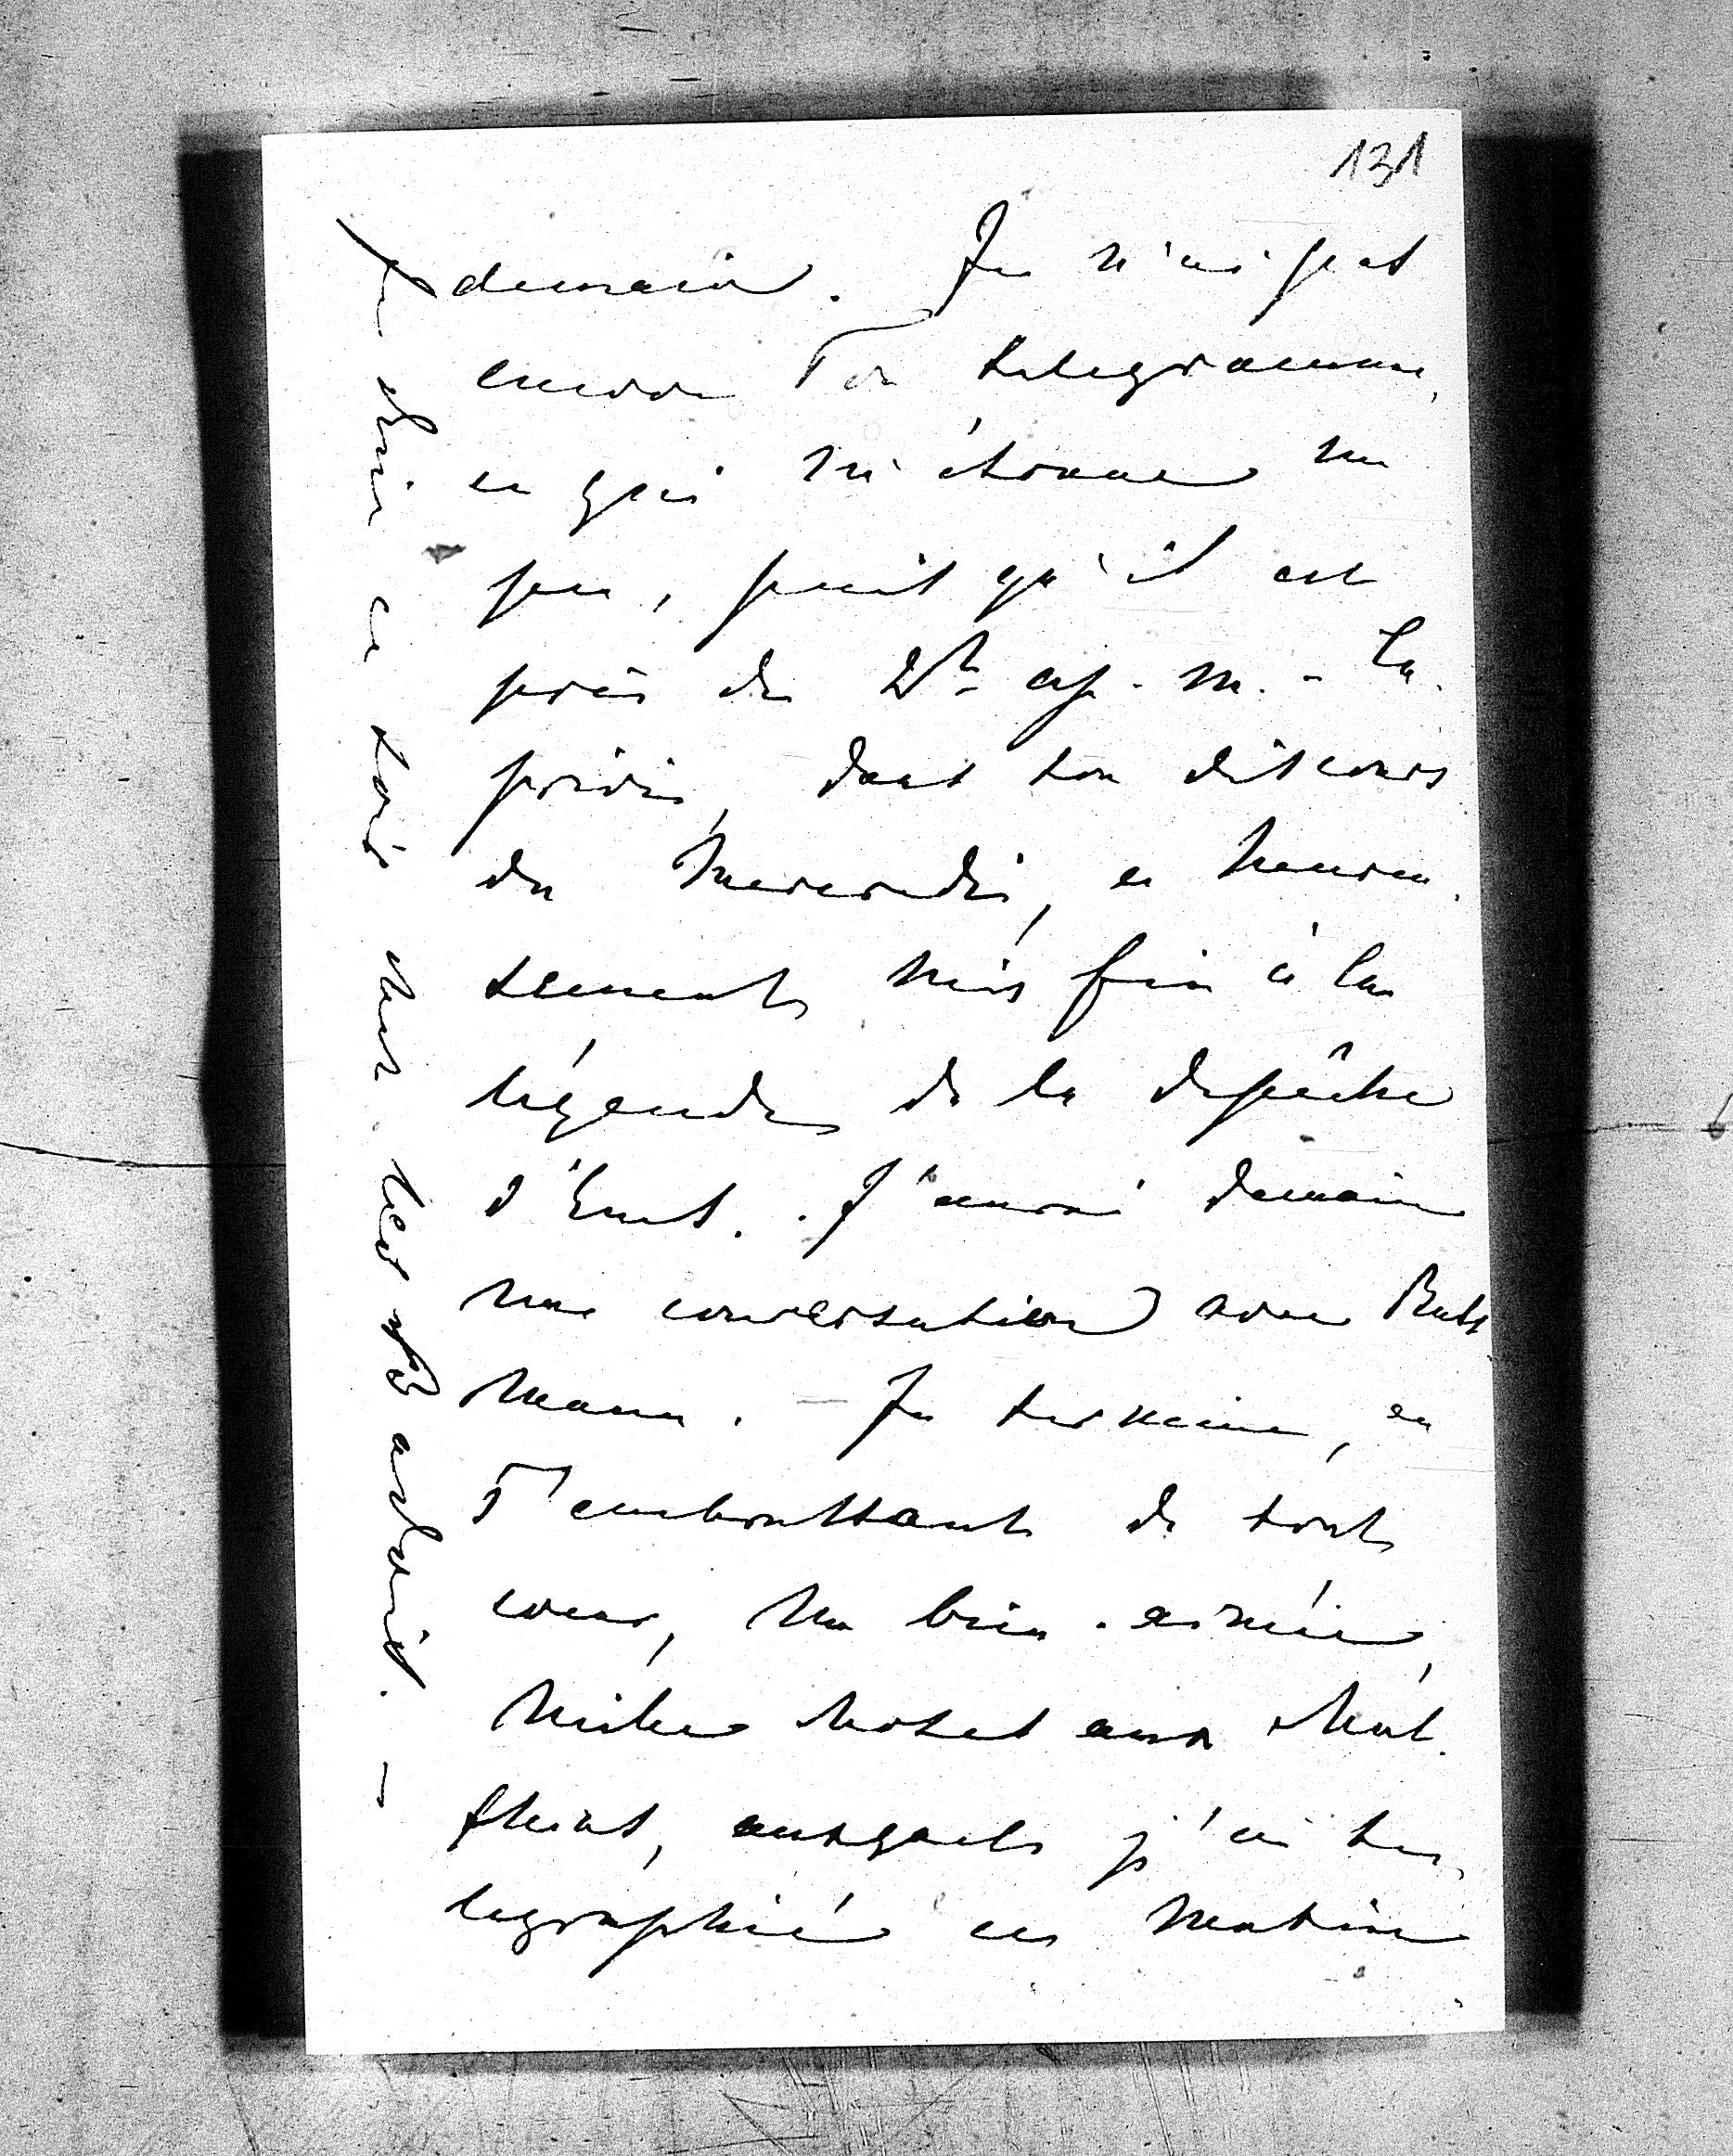 131
demain. Je n'ai pas
encore Ton telegramme,
ce qui m'étonne un
peu, puis qu'il est
près de 2h ap. m. - Ca-
privi, dans son discours
du Mercredi, a heureu-
sement mis fin à la
légende de la depêche
d'Ems. J'aurai demain
une conversation avec
mann. - Je termine, en
T'embrassant de tout
coeur, ma bien-aimée,
Mille choses aux
auxquels j'ai te-
legraphié ce matin
Je dine ce soir chez les